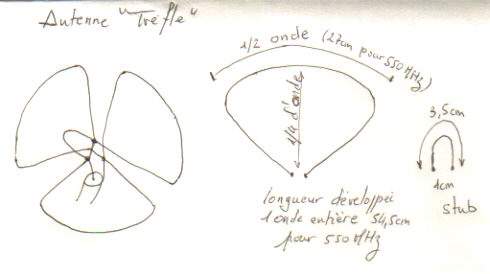 Antenne "Trèfle"
1/2 onde (27cm pour 550MHz)
1/4 d'onde
3,5cm
1cm
stub
longueur développei
1 onde entière 54,5cm
pour 550MHz